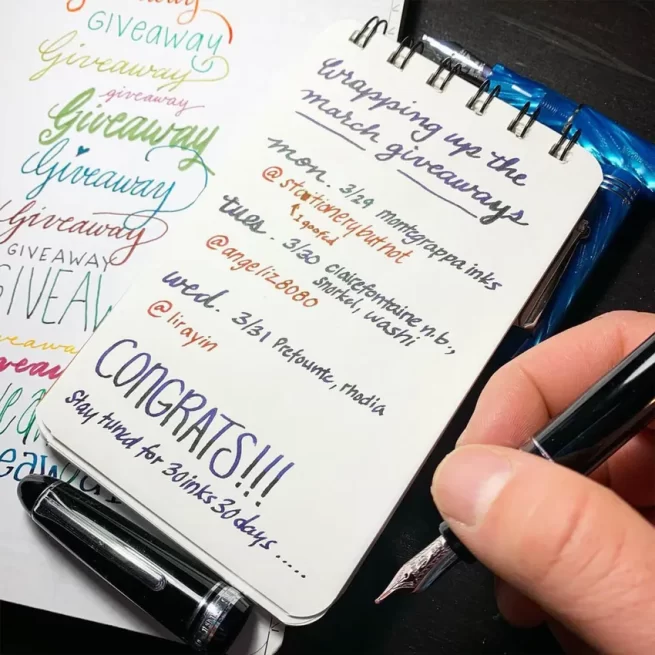 Giveaway
GIVEAWAY
Giveaway
giveaway
Giveaway
Giveaway
Giveaway
GIVEAWAY
GIVEAW
Wrapping up the
march giveaways
mon. 3/29 montegrappa inks
@stationerybutnot
↑ I goofed
tues. 3/30 clairefontaine n.b.,
snorkel, washi
@angeliz8080
wed. 3/31 Prefounte, rhodia
@lirayin
CONGRATS!!!
Stay tuned for 30inks30days.....